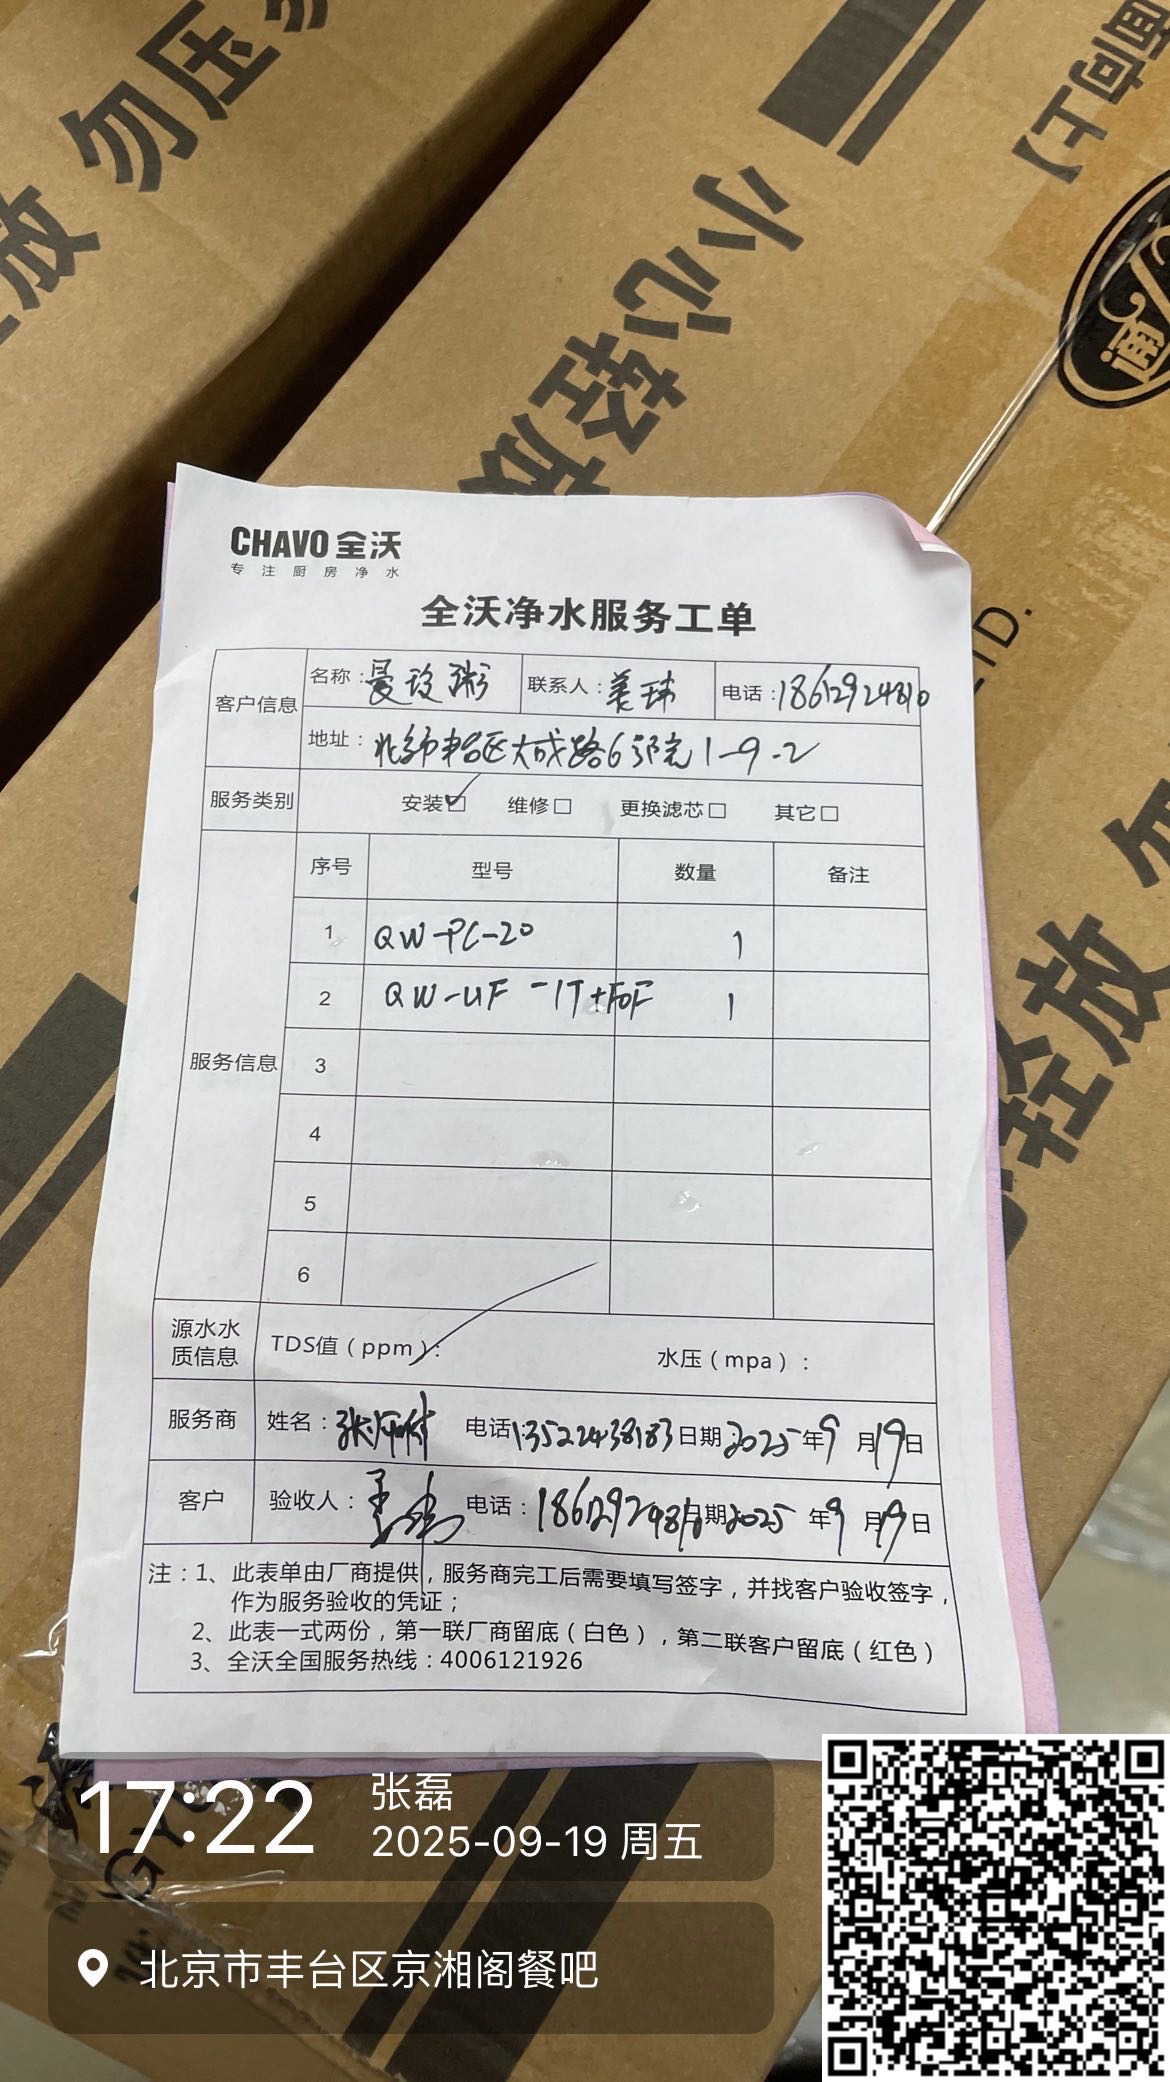 勿压
放
小心轻放
面向上】
通
LTD.
轻放
CHAVO 全沃
专注厨房净水
全沃净水服务工单
客户信息 名称：曼玟粥 联系人：姜玮 电话：18612924810
地址：北京市丰台区大成路6号院1-9-2
服务类别 安装☑ 维修□ 更换滤芯□ 其它□
服务信息 序号 型号 数量 备注
1 QW-PC-20 1
2 QW-UF-1T+FOF 1
3
4
5
6
源水水质信息 TDS值（ppm）： 水压（mpa）：
服务商 姓名： 电话：13522438183 日期：2025年9月19日
客户 验收人： 电话：18612924810 日期：2025年9月19日
注：1、此表单由厂商提供，服务商完工后需要填写签字，并找客户验收签字，
作为服务验收的凭证；
2、此表一式两份，第一联厂商留底（白色），第二联客户留底（红色）
3、全沃全国服务热线：4006121926
17:22
张磊
2025-09-19 周五
北京市丰台区京湘阁餐吧